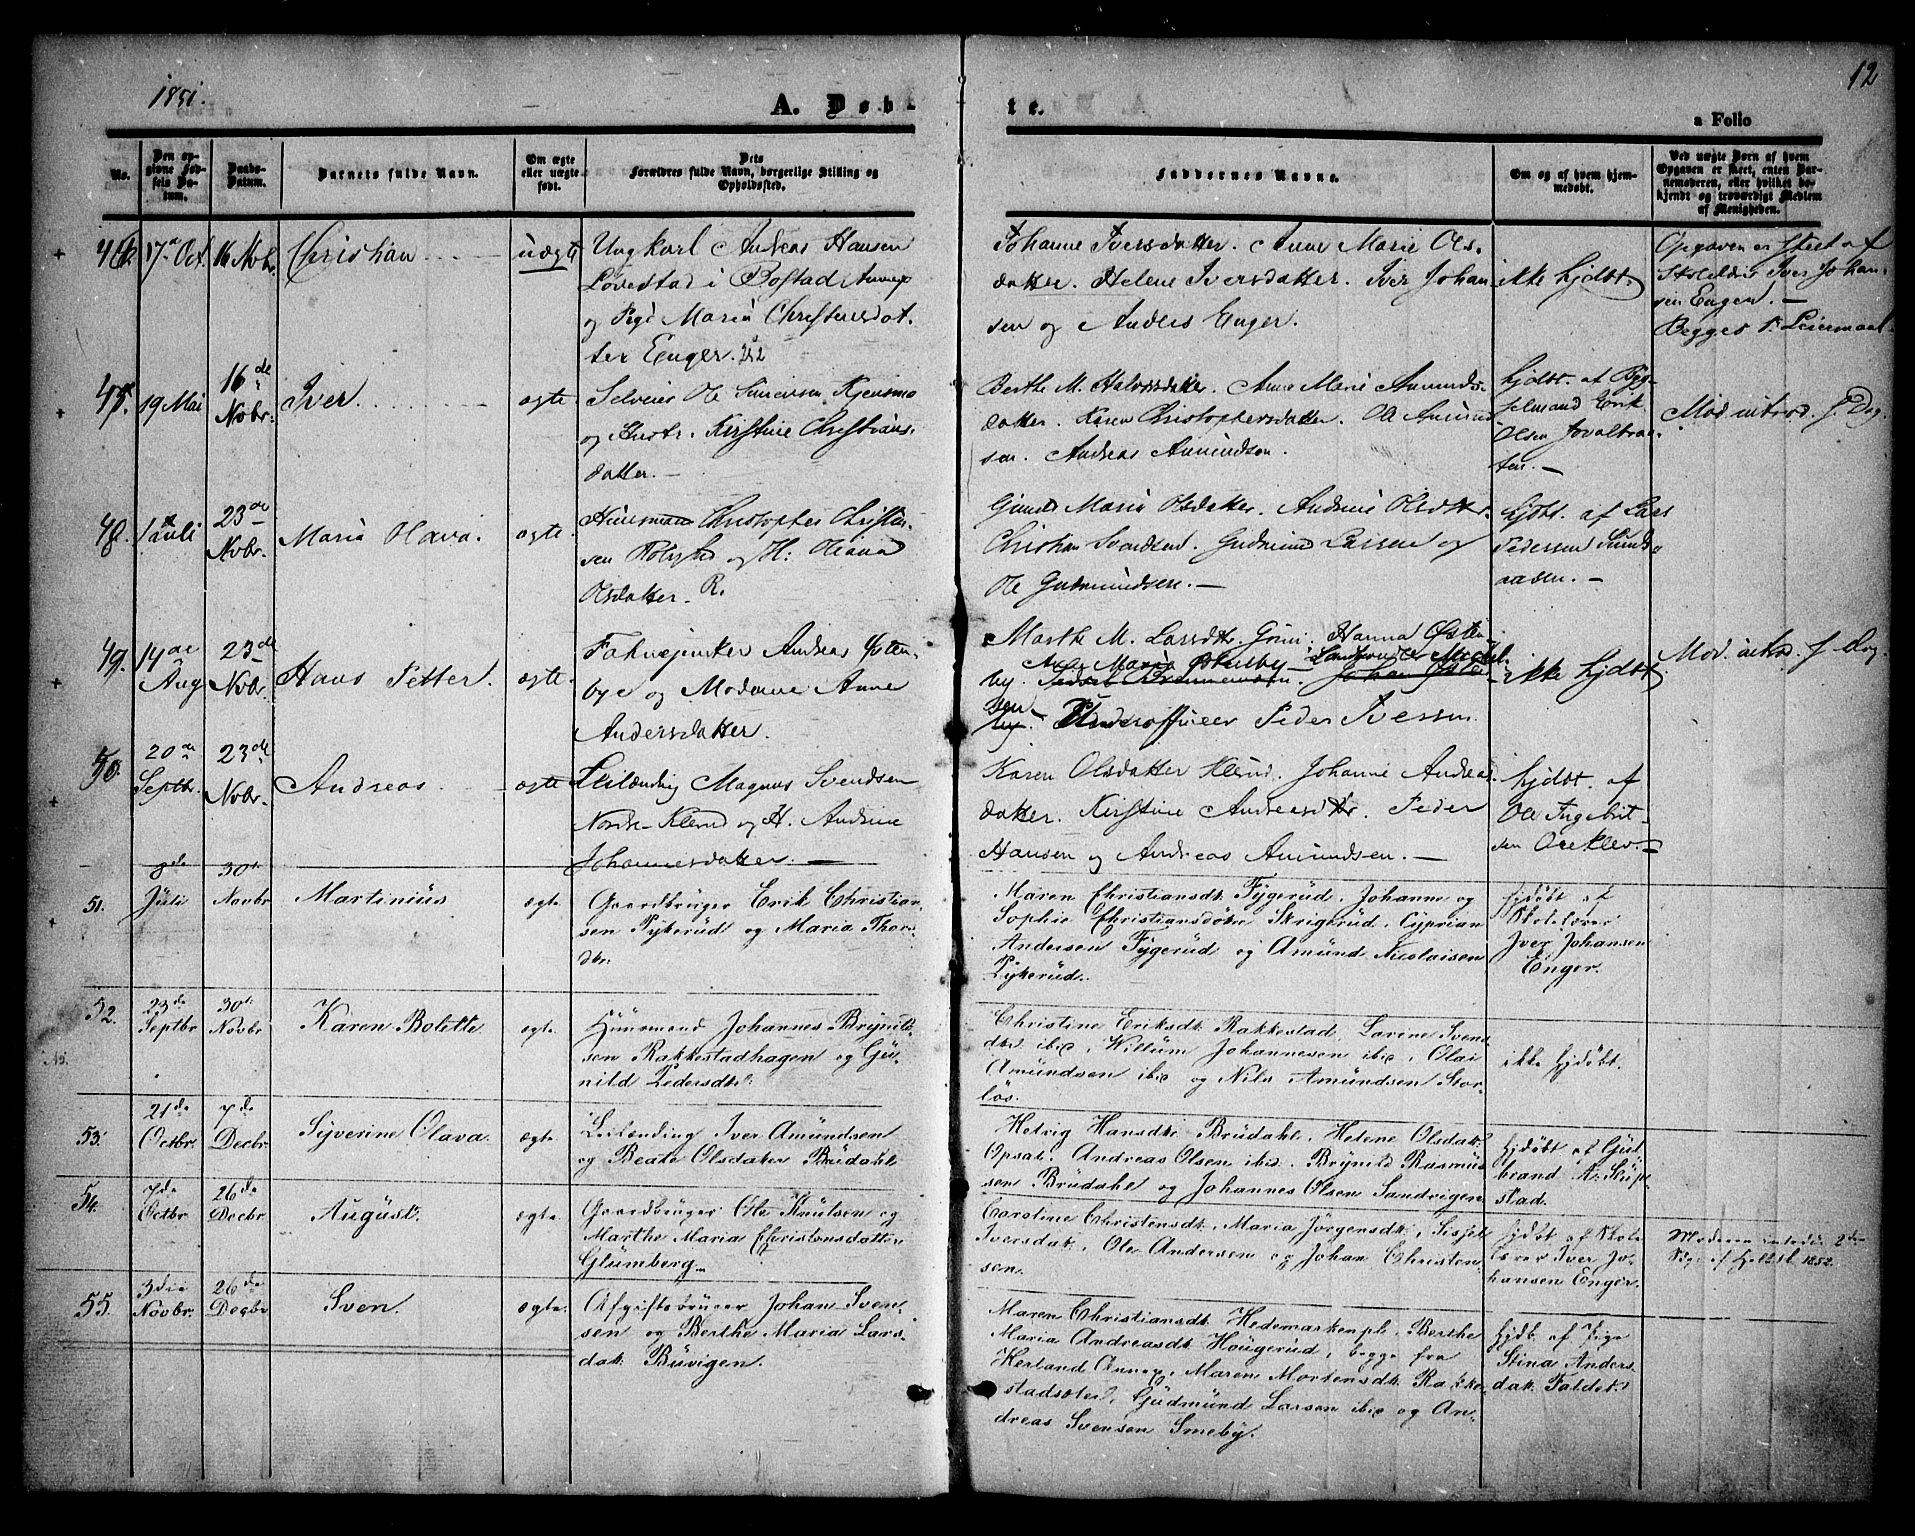 1851.
A. Døb-
te.
12
a Folio
No.
Den op-
givne Fød-
sels Da-
tum.
Daabs-
Datum.
Barnets fulde Navn.
Om ægte
eller uægte
født.
Dets
Forældres fulde Navn, borgerlige Stilling og
Opholdssted.
Faddernes Navne.
Om og af hvem hjem-
medøbt.
Ved uægte Børn af hvem
Opgaven er skeet, enten Bar-
nemoderen, eller hvilket be-
kjendt og troværdigt Medlem
af Menigheden.
46. 17de Oct. 16 Nobr. Christian uægte
Ungkarl Andreas Hansen
Løvestad i Bostad Annex
og Pige Maria Christensdat-
ter Enger.
Johanne Iversdatter. Anne Marie Ols-
datter. Helene Iversdatter. Iver Johan-
sen og Anders Enger.
ikke hjdbt.
Opgaven er skeet af
Skolelærer Iver Johan-
sen Engen.
Begges 1 Leiermaal
47. 19 Mai 16de Nobr. Iver ægte.
Selveier Ole Simensen Kjensmo
og Hustr. Kirstine Christians-
datter.
Berthe M. Halvorsdatter. Anne Marie Amunds-
datter. Karen Christophersdatter. Ole Amund-
sen. Andreas Amundsen.
hjdbt. af
Erik
Olsen
ten.
Mod. introd. s. Dag
48. Juli 23de Nobr. Maria Olava. ægte.
Huusmand Christopher Christian-
sen og H: Oleana
Olsdatter. R.
Maria Olsdatter. Andrine Olsdtter.
Christian Svendsen. Gudmund Larsen og
Ole Gudmundsen.
hjdbt. af Lars
Pedersen Sunds-
aasen.
49. 14de Aug 23de Nobr. Hans Petter. ægte.
Fahnejunker Andreas Østen-
bye og Madame Anne
Andersdatter.
Marthe M. Larsdtr. Hanna Østen-
by. Anne Maria Østensby
sen. Underofficeer Peder Iversen
ikke hjdbt
Mod. introd. s. Dag
50. 20de Septbr. 23de Nobr. Andreas ægte
Leilænding Magnus Svendsen
Nordre Klerud og H. Andrine
Johannesdatter.
Karen Olsdatter Klerud. Johanne Andreas-
datter. Kirstine Andreasdtr. Peder
Hansen og Andreas Amundsen.
hjdbt. af
Ole Ingebrit-
sen Oreklev
51. 8de Juli 30te Novbr Martinius ægte.
Gaardbruger Erik Christian-
sen Tykerud og Maria Thors-
dtr.
Maren Christiansdt. Tygerud, Johanne og
Sophie Christiansdøtre Skrigerud, Cyprian
Andersen Tygerud og Amund Nicolaisen
Tykerud.
hjdøbt af
Skolelærer
Iver Johansen
Enger.
52. 23de Septbr 30te Novbr Karen Bolette ægte.
Huusmand Johannes Brynild-
sen Rakkestadhagen og Gu-
nild Pedersdt.
Christine Eriksdt. Rakkestad, Lorine Svens-
dt. ibid, Willum Johannesen ibid, Olai
Amundsen ibid og Nils Amundsen Stor-
løs.
ikke hjdøbt.
53. 21de Octbr. 7de Decbr. Syverine Olava. ægte.
Leilending Iver Amundsen
og Beate Olsdatter Brudahl
Helvig Hansdt. Brudahl, Helene Olsdat.
Opsal. Andreas Olsen ibid. Brynild Rasmus-
sen Brudahl og Johannes Olsen Sandvigen
hjdøbt af Gul-
brand
stad.
54. 7de Octbr. 26de Decbr. August. ægte.
Gaardbruger Ole Knutsen og
Marthe Maria Christensdatter
Glumberg.
Caroline Christensdt., Maria Jørgensdt., Sissel
Iversdat., Ole Andersen og Johan Christen-
sen.
hjdøbt af Skole-
lærer Iver Jo-
hansen Enger.
Moderen introd. 2den
1852.
55. 3die Novbr. 26de Decbr Sven. ægte.
Afgiftsbruger Johan Sven-
sen og Berthe Maria Lars-
dat. Buvigen.
Maren Christiansdt. Hedemarkenpl., Berthe
Maria Andreasdt. Hougerud, begge fra
Herland Annex, Maren Mortensdt. Rakke-
stadsæter, Gudmund Larsen ibid og An-
dreas Svensen Smeby.
hjdb. af Pige
Stina Anders-
dat. Faldet.